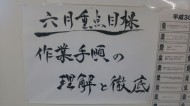 六月重点目標
作業手順の
理解と徹底
平成30